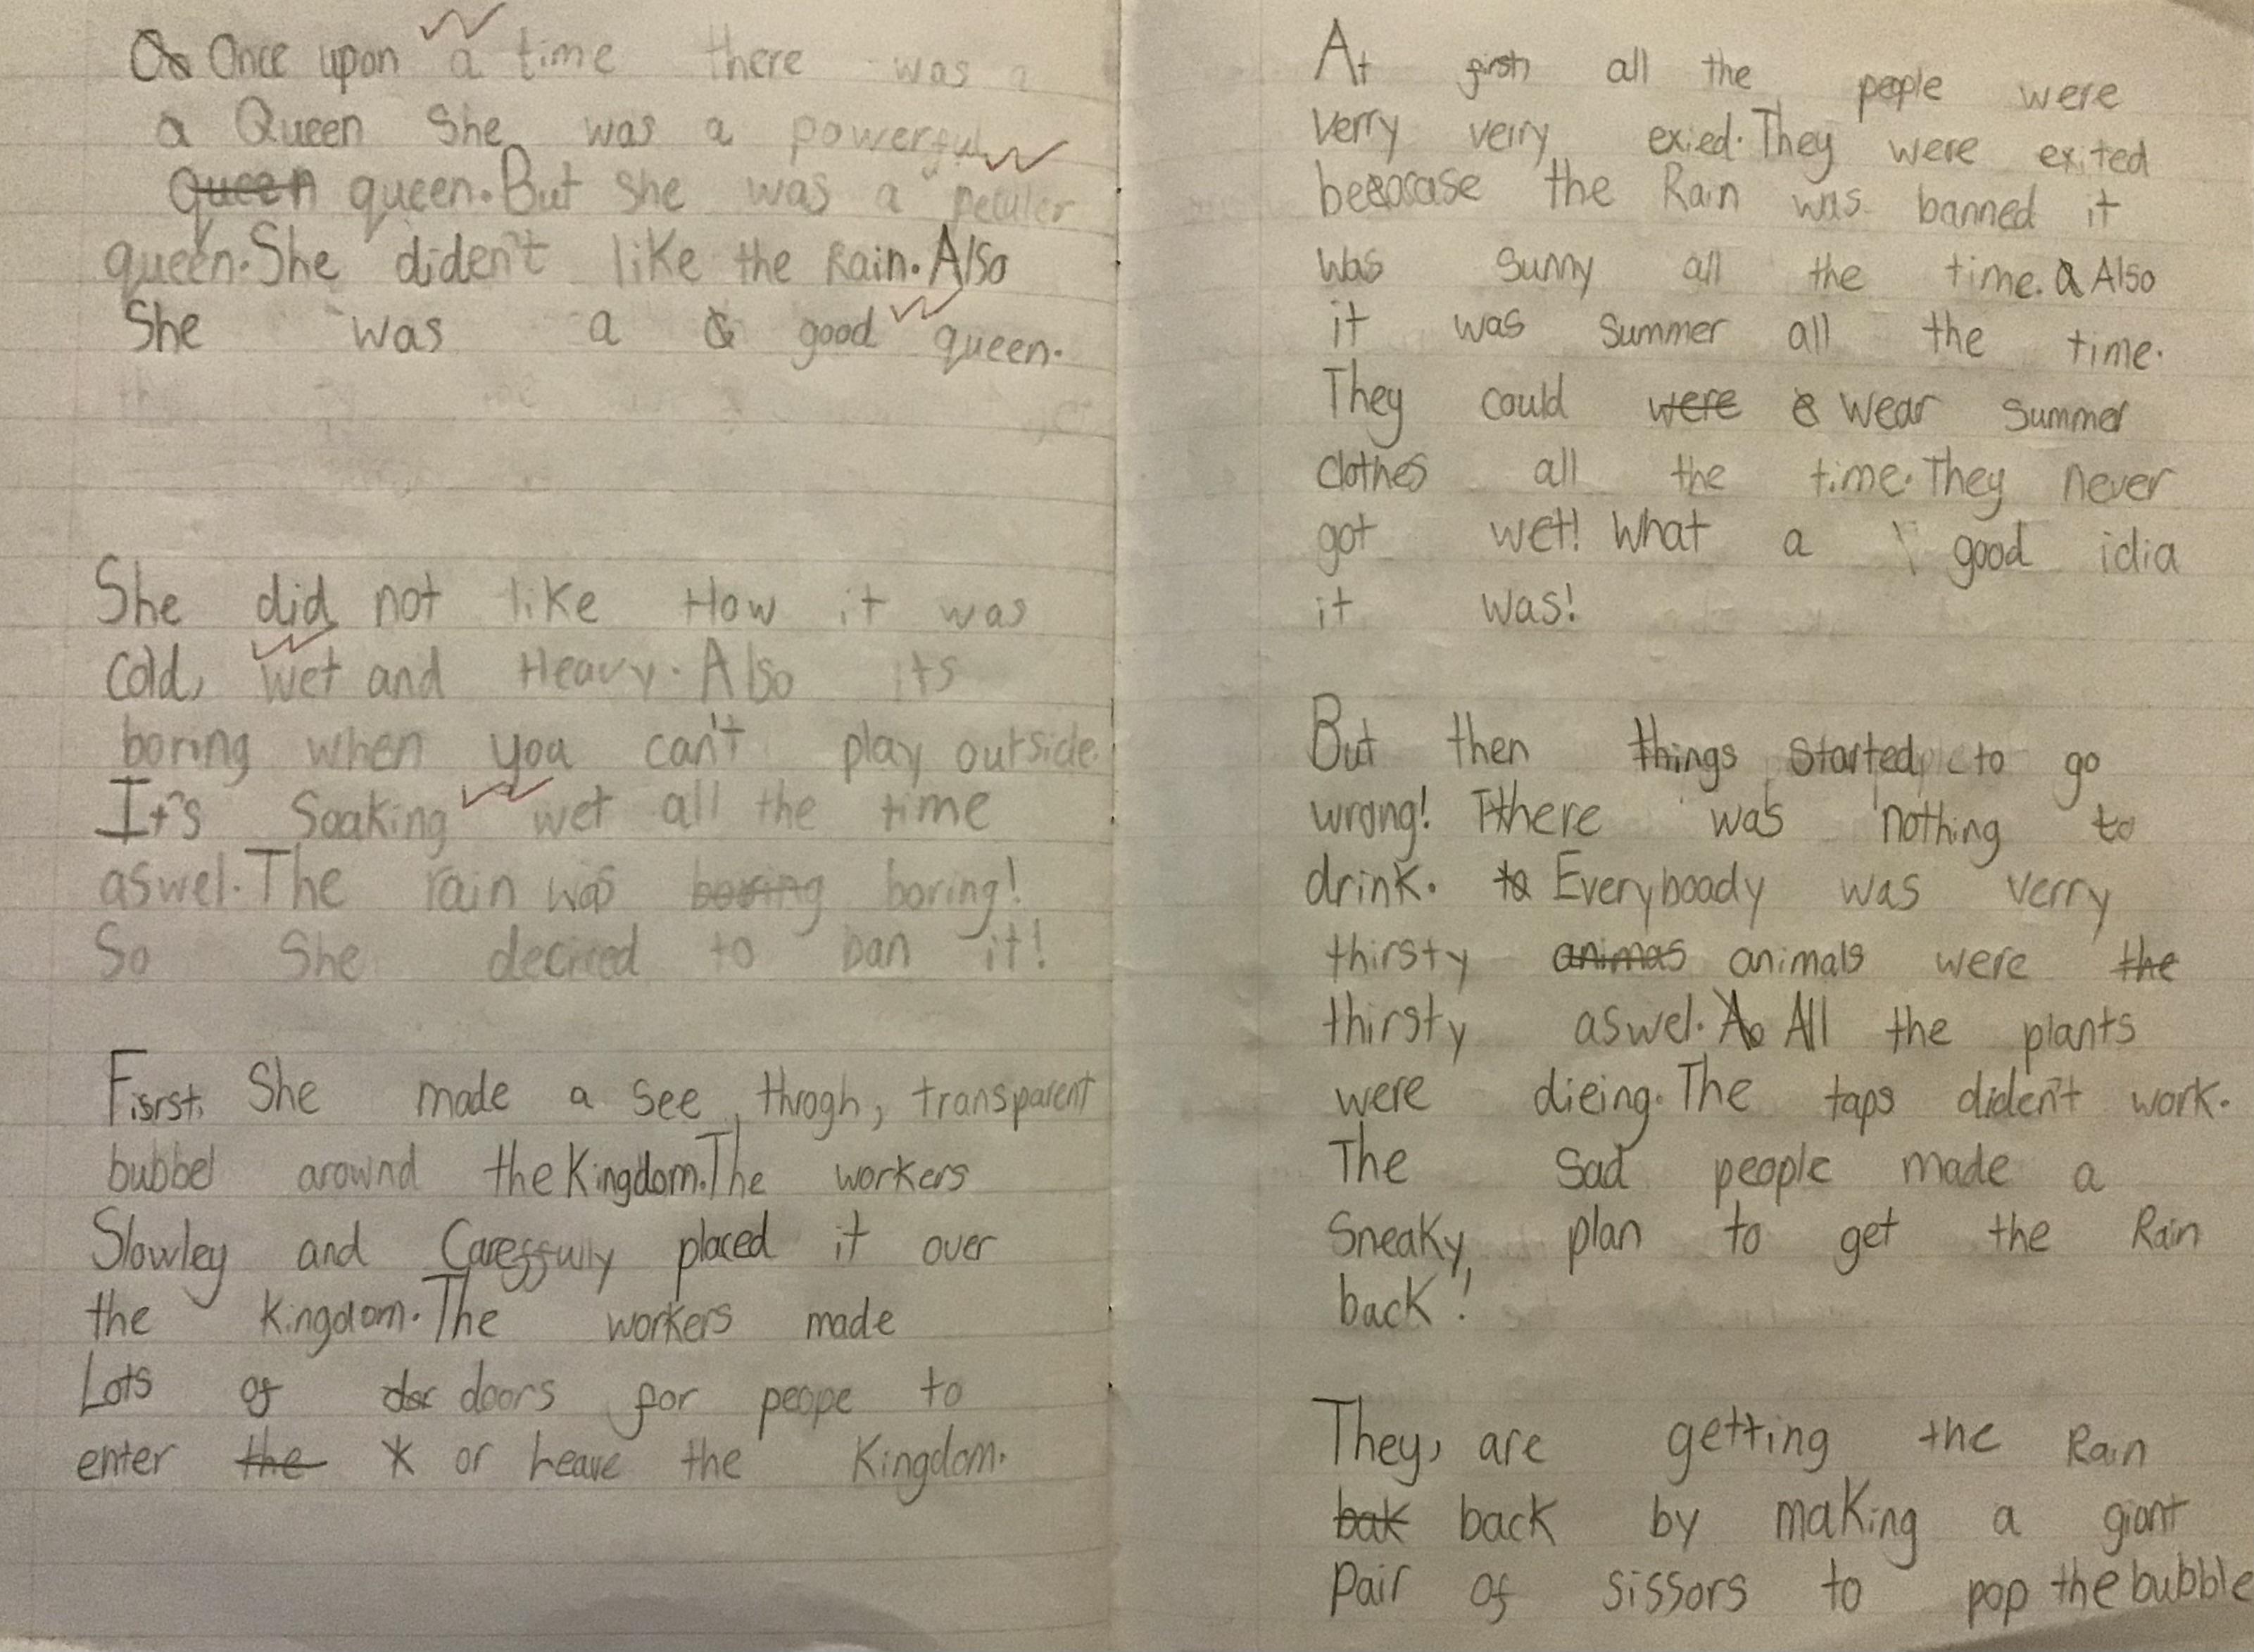 Once upon a time there was a
a Queen She was a powerful
queen queen. But she was a peculer
queen. She diden't like the Rain. Also
She was a good queen.
She did not like How it was
cold, wet and Heavy. Also its
boring when you can't play outside.
It's Soaking wet all the time
aswel. The rain was boring boring!
So She decried to ban it!
Fisrst, She made a see throgh, transparent
bubbel arownd the Kingdom. The workers
Slowley and Careffully placed it over
the Kingdom. The workers made
Lots of dor doors for peope to
enter the or leave the Kingdom.
At first all the people were
verry verry exied. They were exited
because the Rain was banned it
was sunny all the time. Also
it was summer all the time.
They could were wear summer
clothes all the time. They never
got wet! What a good idia
it was!
But then things started to go
wrong! There was nothing to
drink. to Everyboady was verry
thirsty animas animals were the
thirsty aswel. All the plants
were dieing. The taps diden't work.
The sad people made a
Sneaky plan to get the Rain
back!
They, are getting the Rain
bak back by making a giant
Pair of sissors to pop the bubble